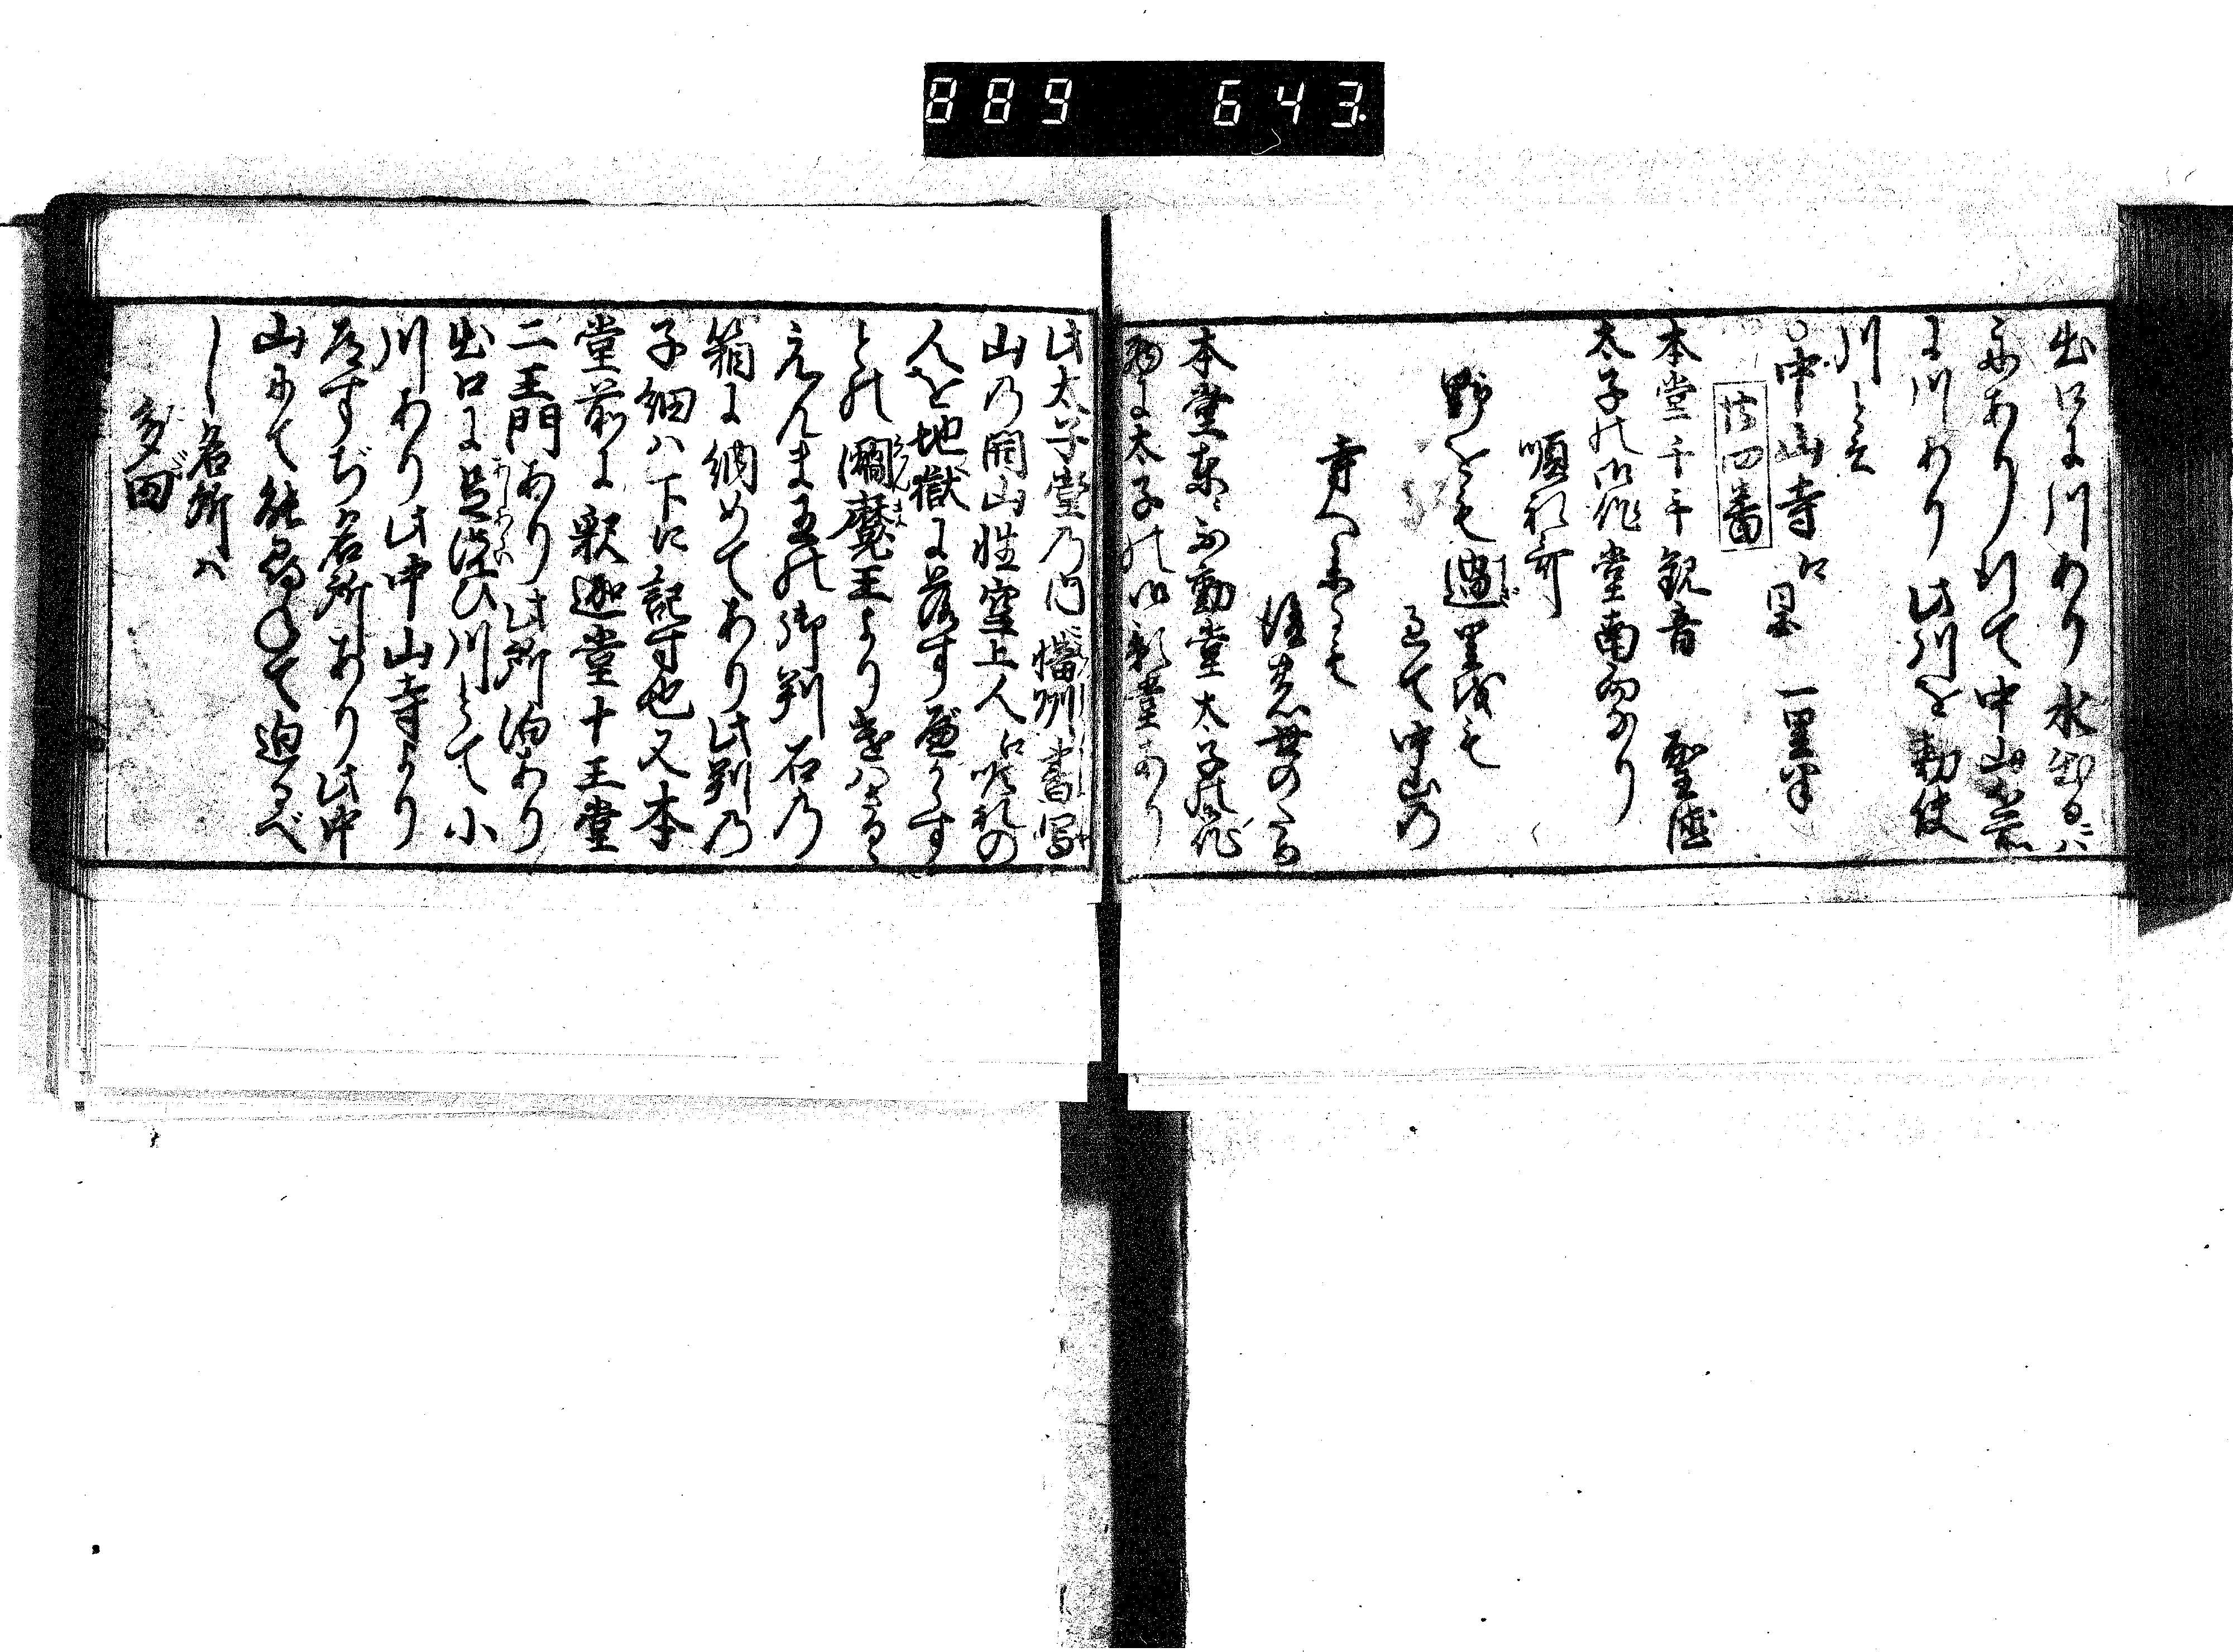 889 643
出口に川あり水出るバ
舟あり行て中山前
に川あり此川を勅使
川と云
○中山寺に 里 一里半
廿四番
本堂千手観音 聖徳
太子の御作堂南向なり
順礼哥
野をもすぎ里をも
過て中山の
寺へまいるも
後の世のため
本堂東ニ不動堂太子御作
西に太子の御影堂あり
此太子堂の内播州書写
山乃開山性空上人に順礼の
人を地獄に落す
との閻魔王より
えんま王の御判石乃
箱に納めてあり此判乃
子細ハ下に記す也又本
堂前に釈迦堂十王堂
二王門あり此所泊あり
出口に足洗ひ川とて小
川あり此中山寺より
道すぢ名所あり此中
山にて能尋ねて廻るべ
し名所ハ
多田